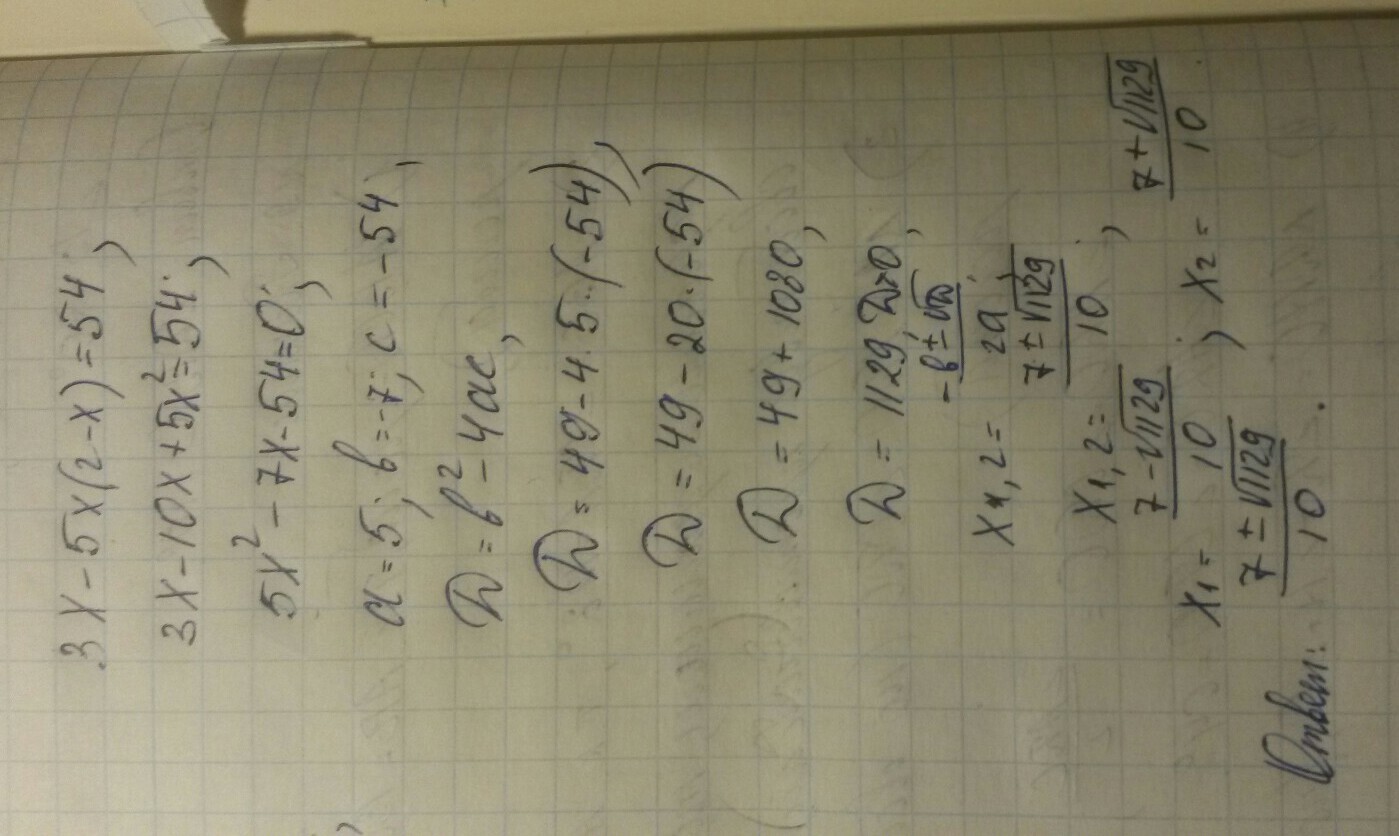 3x-5x(2-x)=54;
3x-10x+5x²=54;
5x²-7x-54=0;
a=5; b=-7; c=-54;
D=b²-4ac;
D=49-4·5·(-54);
D=49-20·(-54)
D=49+1080;
D=1129, D>0;
x₁,₂=(-b±√D)/2a;
x₁,₂=(7±√1129)/10;
x₁=(7-√1129)/10; x₂=(7+√1129)/10
Ответ: (7±√1129)/10.